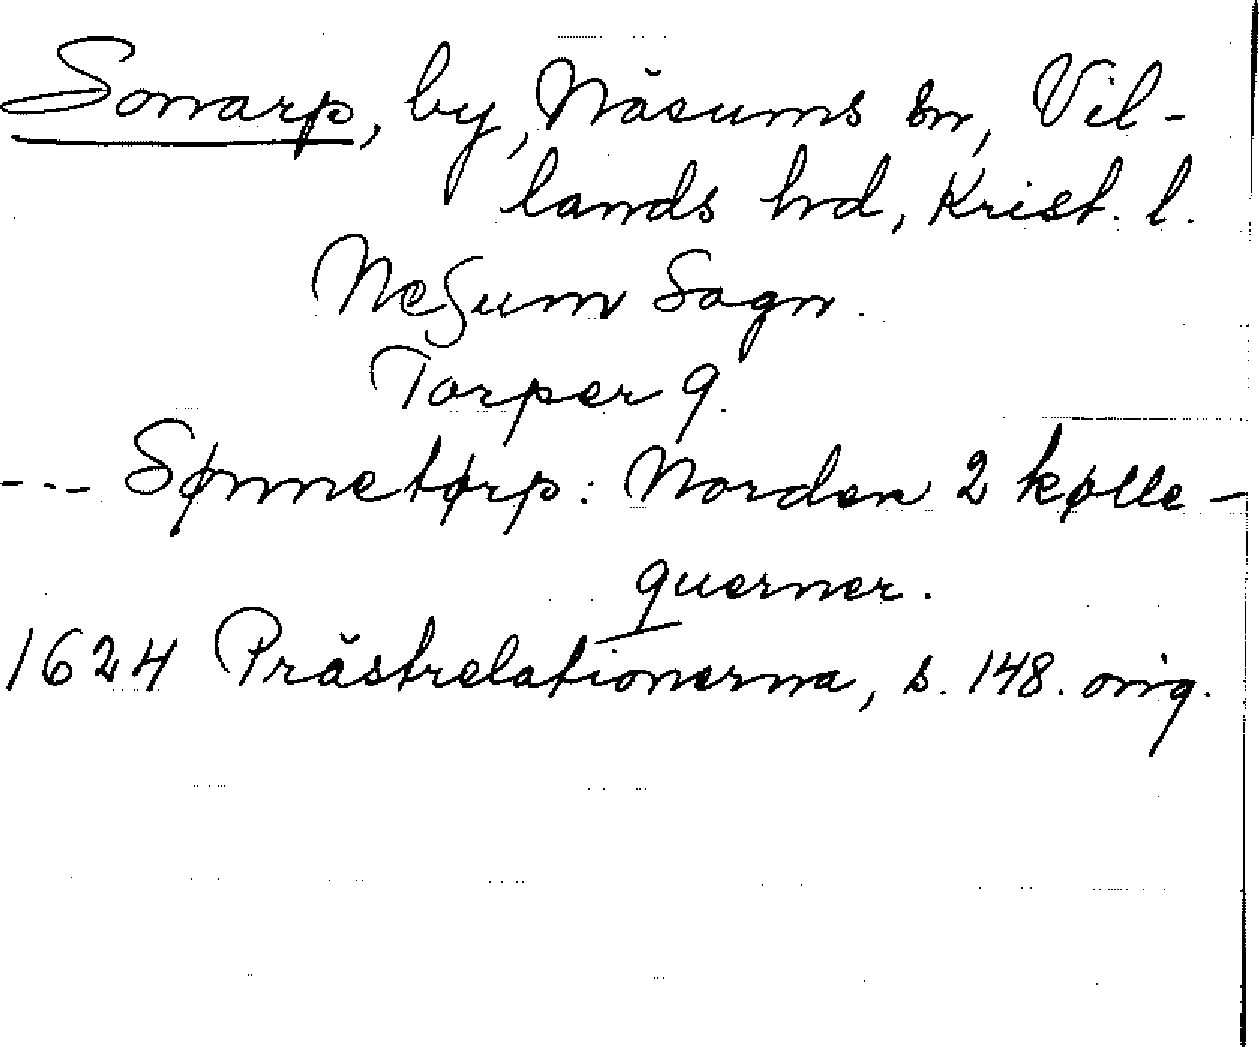 Sonnarp, by, Näsums sn, Vil-
lands hd, Krist. l.
Nesum Sogn.
Torper 9.
--- Sønnetørp: Norden 2 kølle-
querner.
1624 Prästrelationerna, s. 148. orig.